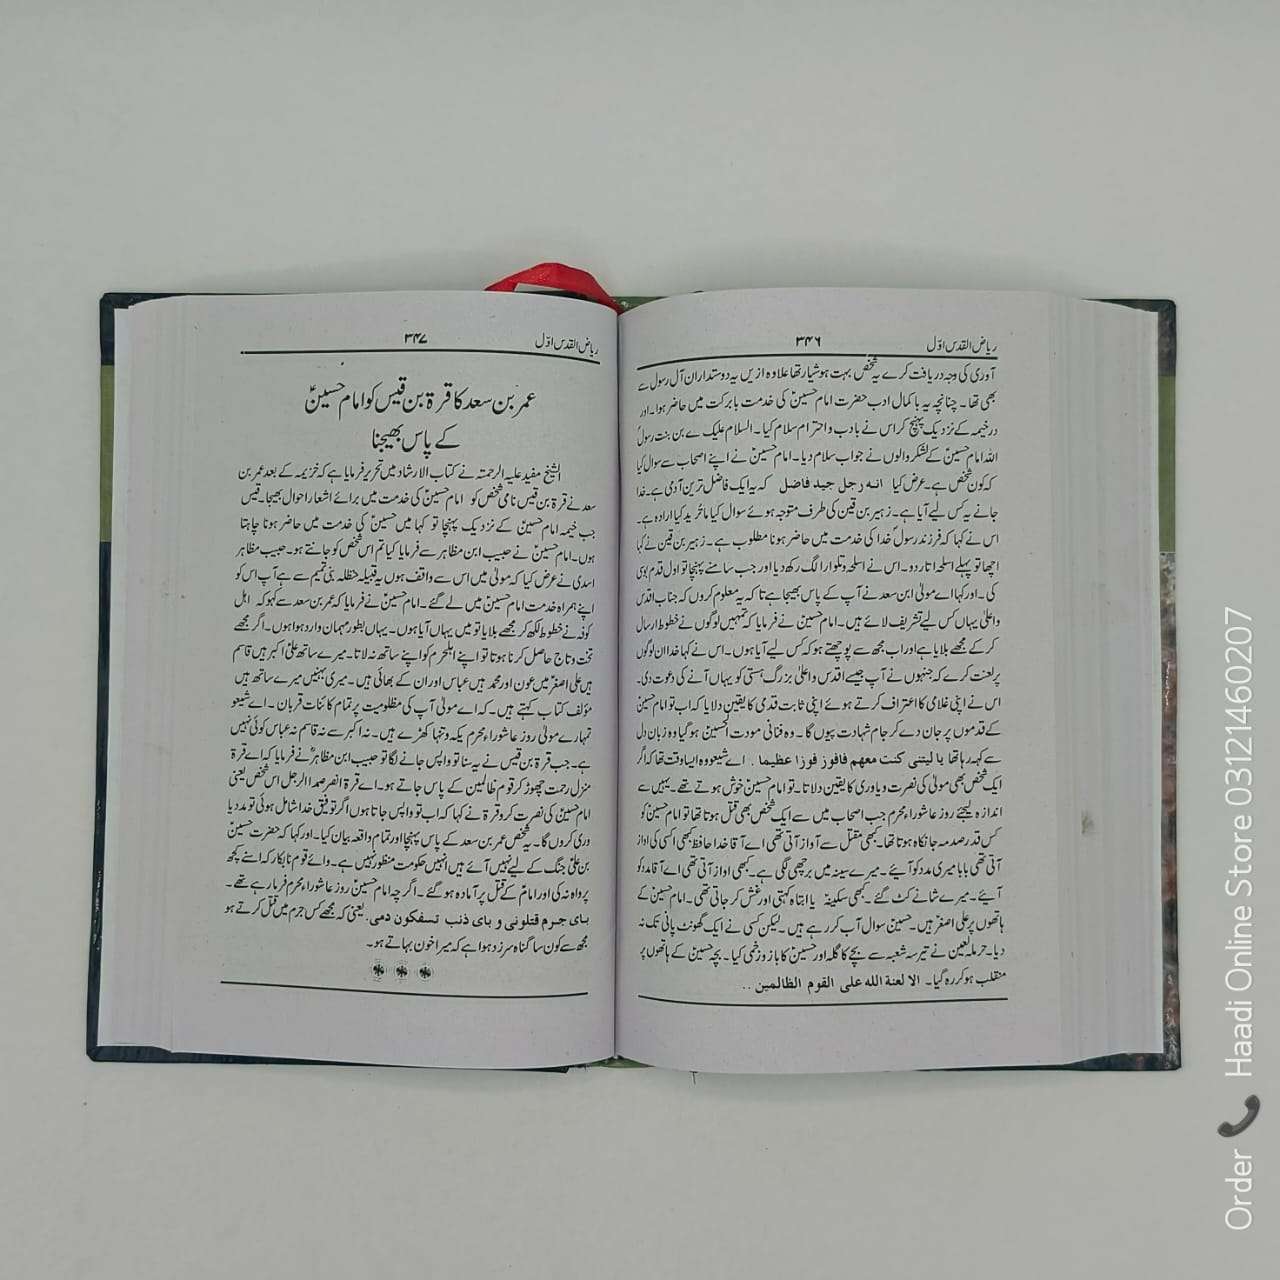 ریاض القدس اوّل ۳۴۶
آوری کی وجہ دریافت کرے یہ شخص بہت ہوشیار تھا علاوہ ازیں یہ دوستداران آل رسول سے
بھی تھا۔ چنانچہ یہ با کمال ادب حضرت امام حسینؑ کی خدمت بابرکت میں حاضر ہوا۔ اور
در خیمہ کے نزدیک پہنچ کر اس نے با ادب و احترام سلام کیا۔ السلام علیک یے بن بنت رسولؐ
اللہ امام حسینؑ کے لشکر والوں نے جواب سلام دیا۔ امام حسینؑ نے اپنے اصحاب سے سوال کیا
کہ کون شخص ہے۔ عرض کیا انه رجل جید فاضل کہ یہ ایک فاضل ترین آدمی ہے۔ خدا
جانے یہ کس لیے آیا ہے۔ زہیر بن قین کی طرف متوجہ ہوئے سوال کیا ما ترید کیا ارادہ ہے۔
اس نے کہا کہ فرزند رسولؐ خدا کی خدمت میں حاضر ہونا مطلوب ہے۔ زہیر بن قین نے کہا
اچھا تو پہلے اسلحہ اتار دو۔ اس نے اسلحہ و تلوار الگ رکھ دیا اور جب سامنے پہنچا تو اول قدم بوسی
کی۔ اور کہا اے مولیٰ ابن سعد نے آپ کے پاس بھیجا ہے تا کہ یہ معلوم کروں کہ جناب اقدس
و اعلیٰ یہاں کس لیے تشریف لائے ہیں۔ امام حسینؑ نے فرمایا کہ تمہیں لوگوں نے خطوط ارسال
کر کے مجھے بلایا ہے اور اب مجھ سے پوچھتے ہو کہ کس لیے آیا ہوں۔ اس نے کہا خدا ان لوگوں
پر لعنت کرے کہ جنہوں نے آپ جیسے اقدس و اعلیٰ بزرگ ہستی کو یہاں آنے کی دعوت دی۔
اس نے اپنی غلامی کا اعتراف کرتے ہوئے اپنی ثابت قدمی کا یقین دلایا کہ اب تو امام حسینؑ
کے قدموں پر جان دے کر جام شہادت پیوں گا۔ وہ فنا فی مودت الحسینؑ ہو گیا وہ زبان دل
سے کہہ رہا تھا یا لیتنی کنت معهم فافوز فوزا عظیما۔ اے شیعو وہ ایسا وقت تھا کہ اگر
ایک شخص بھی مولیٰ کی نصرت و یاوری کا یقین دلاتا۔ تو امام حسینؑ خوش ہوتے تھے۔ یہیں سے
اندازہ لیجئے روز عاشوراء محرم جب اصحاب میں سے ایک شخص بھی قتل ہوتا تھا تو امام حسینؑ کو
کس قدر صدمہ جانکاہ ہوتا تھا۔ کبھی مقتل سے آواز آتی تھی اے آقا خدا حافظ کبھی اکسی کی اواز
آتی تھی بابا میری مدد کو آئیے۔ میرے سینہ میں برچھی لگی ہے۔ کبھی اواز آتی تھی اے آقا مدد کو
آیئے۔ میرے شانے کٹ گئے۔ کبھی سکینہؑ یا ابتاہ کہتی اور غش کر جاتی تھی۔ امام حسینؑ کے
ہاتھوں پر علی اصغرؑ ہیں۔ حسینؑ سوال آب کر رہے ہیں۔ لیکن کسی نے ایک گھونٹ پانی تک نہ
دیا۔ حرملہ لعین نے تیر سہ شعبہ سے بچے کا گلہ اور حسینؑ کا بازو زخمی کیا۔ بچہ حسینؑ کے ہاتھوں پر
منقلب ہو کر رہ گیا۔ الا لعنة الله علی القوم الظالمین ..
ریاض القدس اوّل ۳۴۷
عمر بن سعد کا قرۃ بن قیس کو امام حسینؑ
کے پاس بھیجنا
الشیخ مفید علیہ الرحمتہ نے کتاب الارشاد میں تحریر فرمایا ہے کہ خزیمہ کے بعد عمر بن
سعد نے قرۃ بن قیس نامی شخص کو امام حسینؑ کی خدمت میں برائے اشعار احوال بھیجا۔ قیس
جب خیمہ امام حسینؑ کے نزدیک پہنچا تو کہا میں حسینؑ کی خدمت میں حاضر ہونا چاہتا
ہوں۔ امام حسینؑ نے حبیب ابن مظاہر سے فرمایا کیا تم اس شخص کو جانتے ہو۔ حبیب مظاہر
اسدی نے عرض کیا کہ مولیٰ میں اس سے واقف ہوں یہ قبیلہ حنظلہ بنی تمیم سے ہے آپ اس کو
اپنے ہمراہ خدمت امام حسینؑ میں لے گئے۔ امام حسینؑ نے فرمایا کہ عمر بن سعد سے کہو کہ اہل
کوفہ نے خطوط لکھ کر مجھے بلایا تو میں یہاں آیا ہوں۔ یہاں بطور مہمان وارد ہوا ہوں۔ اگر مجھے
تخت و تاج حاصل کرنا ہوتا تو اپنے اہلحرم کو اپنے ساتھ نہ لاتا۔ میرے ساتھ علی اکبر ہیں قاسم
ہیں علی اصغرؑ میں عون اور محمد ہیں عباس اور ان کے بھائی ہیں۔ میری بہنیں میرے ساتھ ہیں
مؤلف کتاب کہتے ہیں۔ کہ اے مولیٰ آپ کی مظلومیت پر تمام کائنات قربان۔ اے شیعو
تمہارے مولیٰ روز عاشوراء محرم یکہ و تنہا کھڑے ہیں۔ نہ اکبر سے نہ قاسم نہ عباس کوئی نہیں
ہے۔ جب قرۃ بن قیس نے یہ سنا تو واپس جانے لگا تو حبیب ابن مظاہرؒ نے فرمایا کہ اے قرۃ
منزل رحمت چھوڑ کر قوم ظالمین کے پاس جاتے ہو۔ اے قرۃ انصر ھذا الرجل اس شخص یعنی
امام حسینؑ کی نصرت کرو قرۃ نے کہا کہ اب تو واپس جاتا ہوں اگر توفیق خدا شامل ہوئی تو مدد یا
دری کروں گا۔ یہ شخص عمر بن سعد کے پاس پہنچا اور تمام واقعہ بیان کیا۔ اور کہا کہ حضرت حسینؑ
بن علیؑ جنگ کے لیے نہیں آئے ہیں انہیں حکومت منظور نہیں ہے۔ وائے قوم نابکار کہ اسنے کچھ
پرواہ نہ کی اور امامؑ کے قتل پر آمادہ ہو گئے۔ اگرچہ امام حسینؑ روز عاشوراء محرم فرما رہے تھے۔
بای جرم قتلونی و بای ذنب تسفکون دمی۔ یعنی کہ مجھے کس جرم میں قتل کرتے ہو
مجھ سے کون سا گناہ سرزد ہوا ہے کہ میرا خون بہاتے ہو۔
Order Haadi Online Store 03121460207